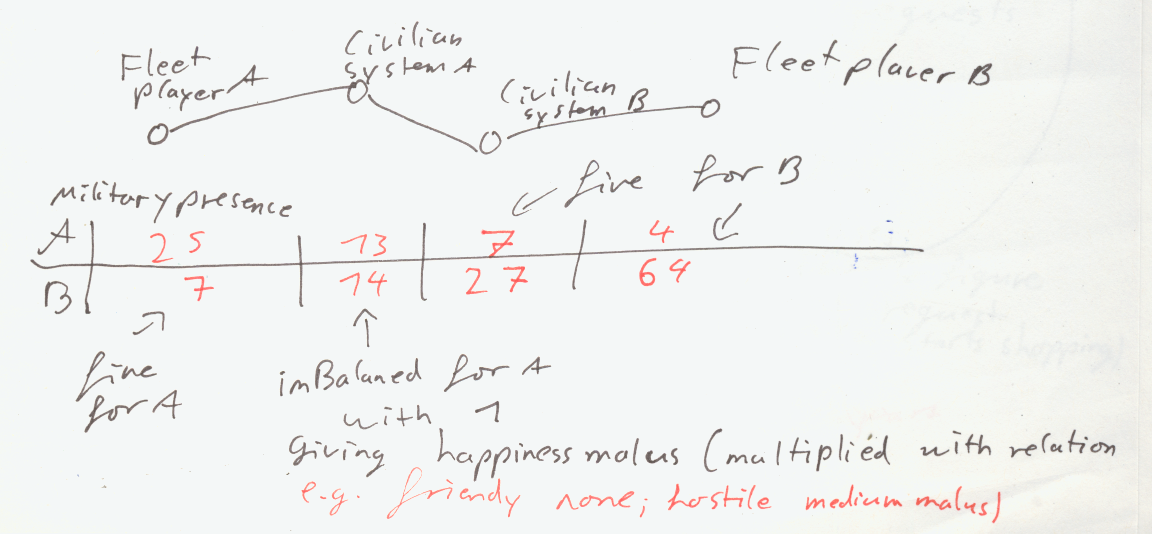 Fleet player A
Civilian system A
Civilian system B
Fleet player B
military presence
fine for B
A 25 13 7 4
B 7 14 27 64
fine for A
imBalaned for A
with 1
giving happiness malus (multiplied with relation
e.g. friendly none; hostile medium malus)